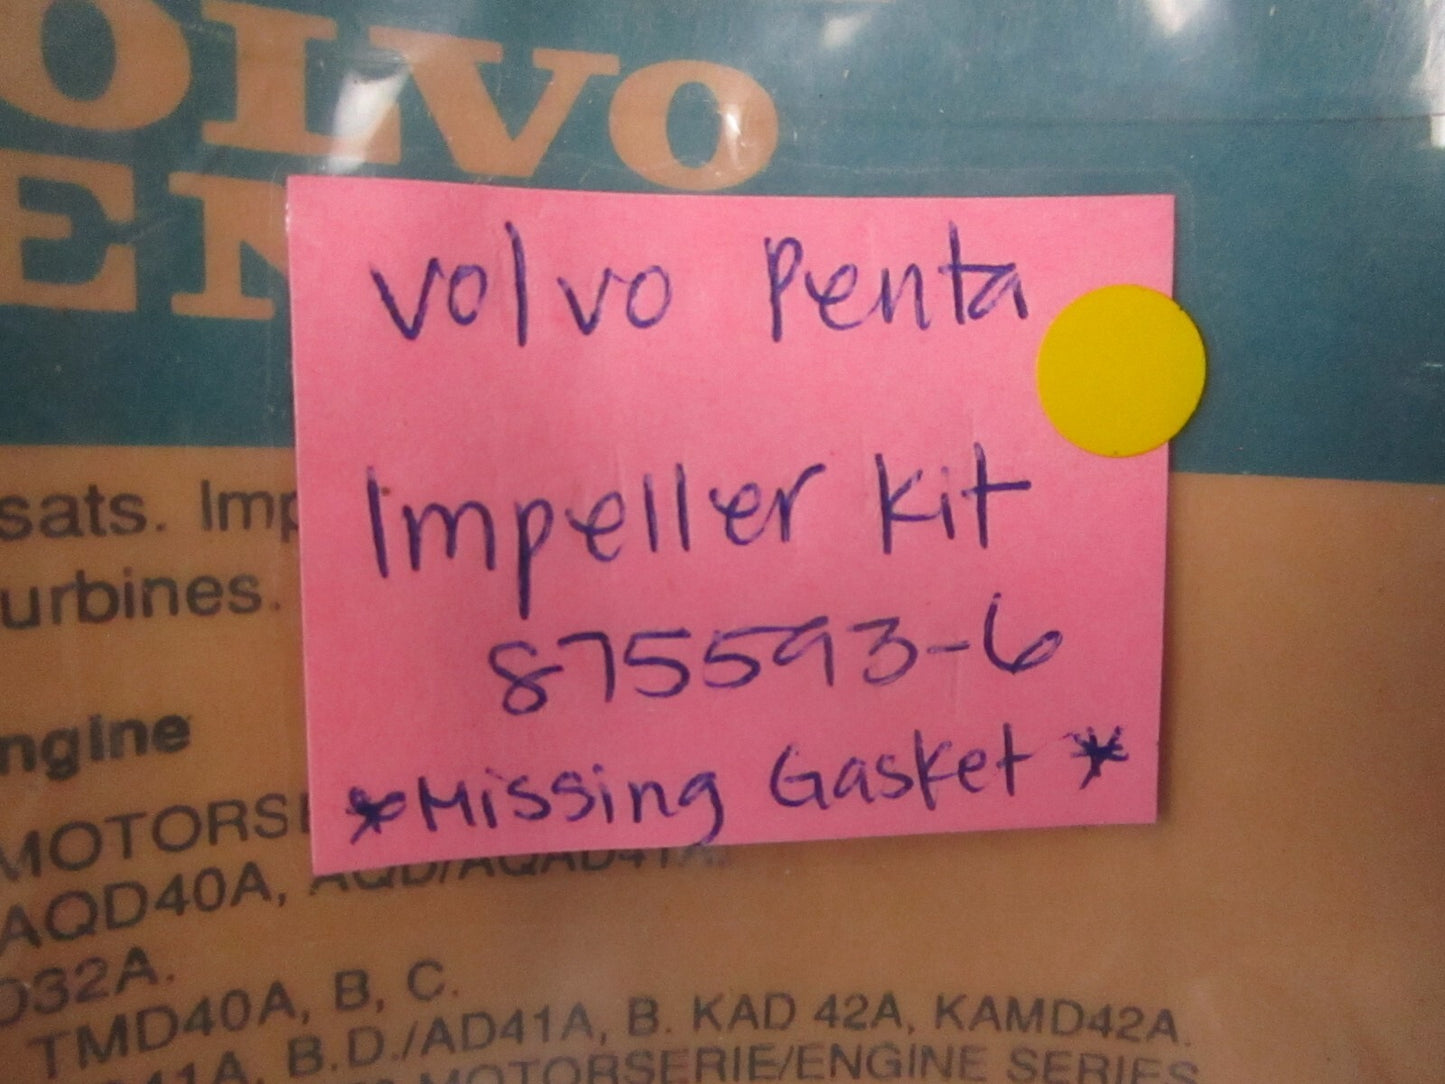 OLVO
EN
Volvo Penta
Impeller Kit
875593-6
*Missing Gasket*
sats. Imp
urbines.
ngine
MOTORSE
AQD40A, AQD/AQAD41A.
D32A.
TMD40A, B, C.
41A, B.D./AD41A, B. KAD 42A, KAMD42A.
MOTORSERIE/ENGINE SERIES